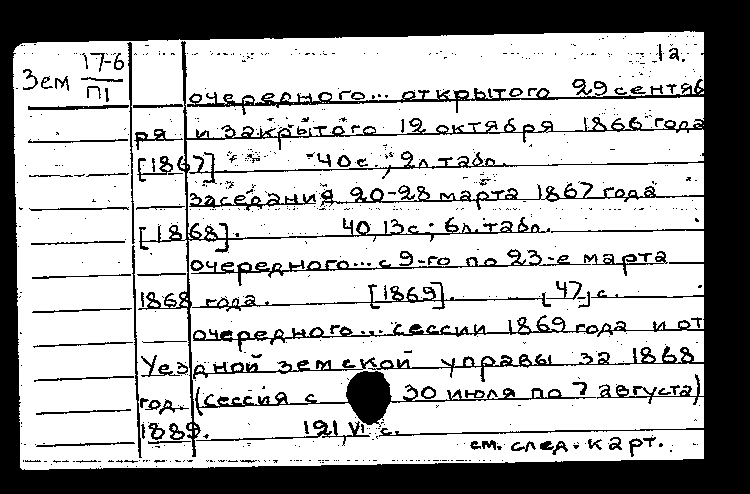 1а.
Зем 17-6
П1
очередного... открытого 29 сентяб
ря и закрытого 12 октября 1866 года
[1867]. 40 с., 2л. табл.
заседания 20-28 марта 1867 года
[1868]. 40, 13с; 6л. табл.
очередного... с 9-го по 23-е марта
1868 года. [1869]. [47] с.
очередного... сессии 1869 года и от
Уездной земской управы за 1868
год. (сессия с 30 июля по 7 августа)
1889. 121, VI с.
см. след. карт.